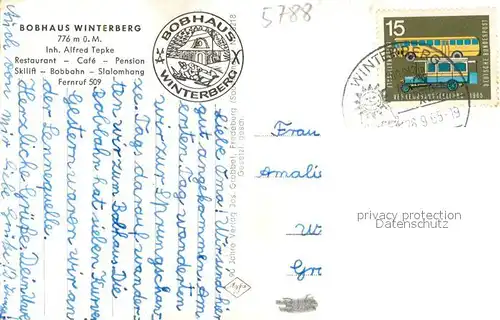 BOBHAUS WINTERBERG
776 m ü. M.
Inh. Alfred Tepke
Restaurant – Café – Pension
Skilift – Bobbahn – Slalomhang
Fernruf 509
BOBHAUS
WINTERBERG
5788
Liebe Oma! Wir sind hier
gut angekommen. Am
ersten Tag wanderten
wir zur Sprungschan-
ze. Tags darauf wander-
ten wir zum Bobhaus. Die
Bobbahn hat sieben Kurven.
Gestern waren wir an
der Lennequelle.
Herzliche Grüße, Dein Uwe
Auch von mir liebe Grüße
Jahre Verlag Jos. Grobbel, Fredeburg
Gesetzl. gesch.
Frau
Amalie
W
Gr
15
DEUTSCHE BUNDESPOST
WINTERBERG
26.9.65-19
privacy protection
Datenschutz